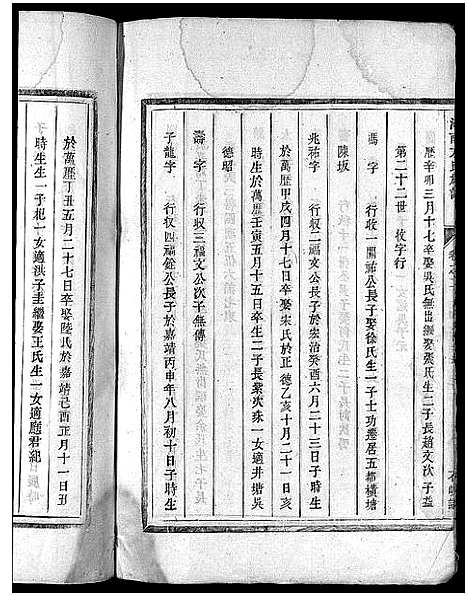 曆辛卯三月十七卒娶吳氏無出繼娶張氏生二子長趙文次子益
第二十二世 收字行
馮字 行收一關祐公長子娶徐氏生一子士功遷居五都橫塘
陳坂
兆祐字 行收二福文公長子於宏治癸酉六月二十三日子時生
於萬曆甲戌四月十七日卒娶宋氏於正德乙亥十月二十一日亥
時生於萬曆壬寅五月十五日卒生二子長紫次珠一女適井塘吳
德昭
壽字 行收三福文公次子無傳
子龍字 行收四福銓公長子於嘉靖丙申年八月初十日子時生
於萬曆丁丑五月二十七日卒娶陸氏於嘉靖己酉正月十一日丑
時生生一子杞一女適洪子圭繼娶王氏生一女適應君紀